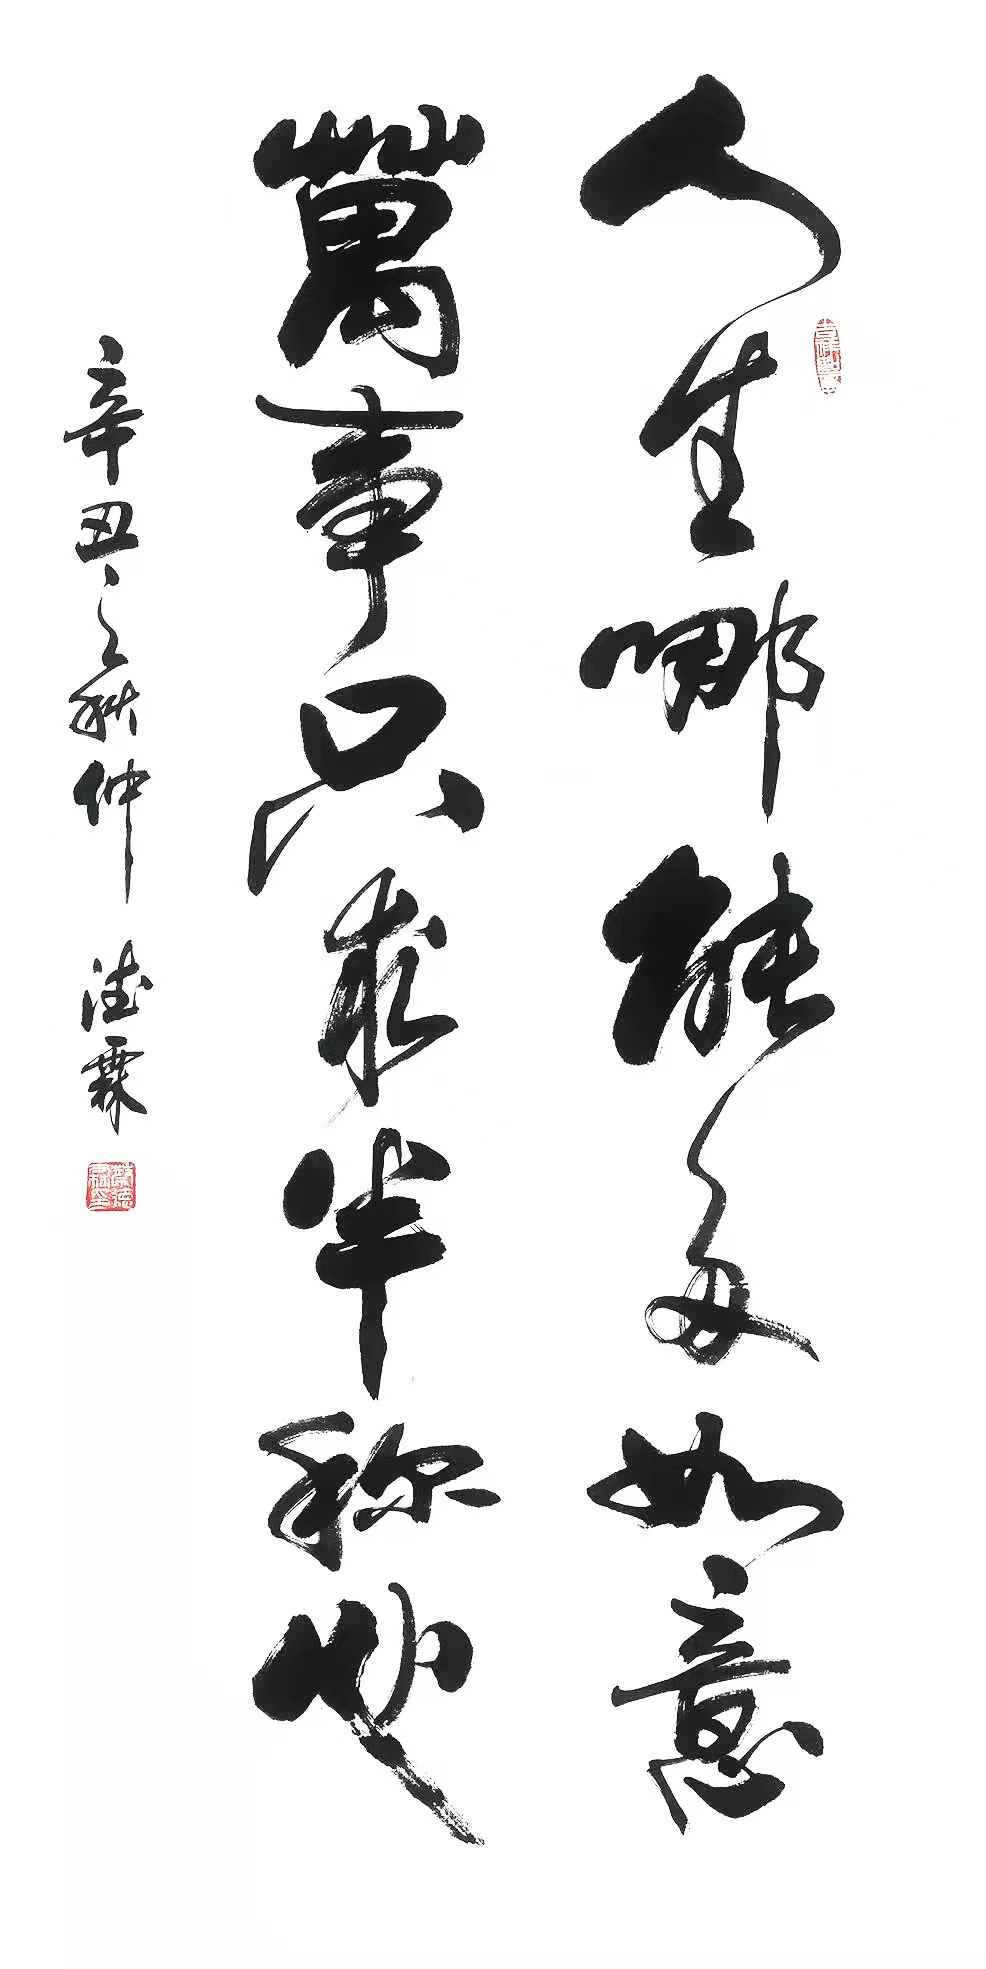 人生哪能多如意
萬事只求半称心
辛丑之秋仲 德霖